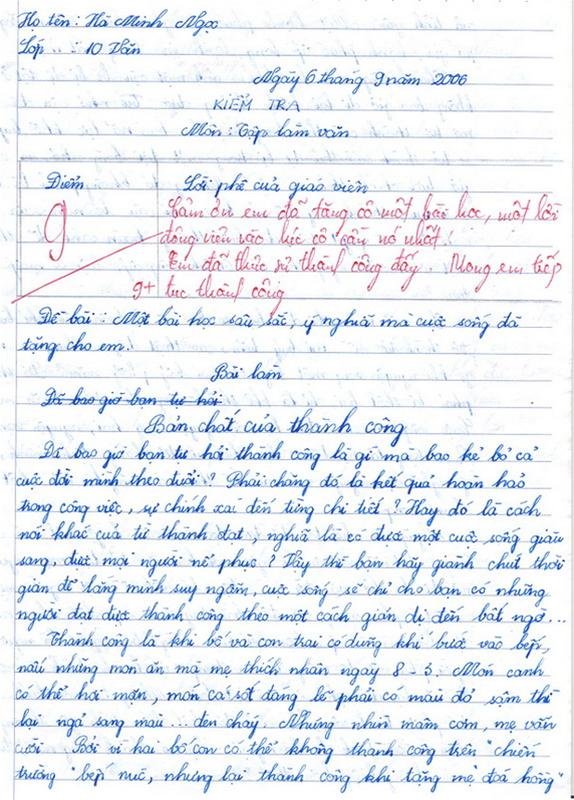 Họ tên : Hà Minh Ngọc
Lớp : 10 Văn
Ngày 6 tháng 9 năm 2006
KIỂM TRA
Môn : Tập làm văn
Điểm
Lời phê của giáo viên
9
Cảm ơn em đã tặng cô một bài học, một lời
động viên vào lúc cô cần nó nhất.
Em đã thực sự thành công đấy. Mong em tiếp
9+ tục thành công
Đề bài : Một bài học sâu sắc, ý nghĩa mà cuộc sống đã
tặng cho em.
Bài làm
Đã bao giờ bạn tự hỏi
Bản chất của thành công
Đã bao giờ bạn tự hỏi thành công là gì mà bao kẻ bỏ cả
cuộc đời mình theo đuổi ? Phải chăng đó là kết quả hoàn hảo
trong công việc, sự chính xác đến từng chi tiết ? Hay đó là cách
nói khác của từ thành đạt, nghĩa là có được một cuộc sống giàu
sang, được mọi người nể phục ? Vậy thì bạn hãy giành chút thời
gian để lặng mình suy ngẫm, cuộc sống sẽ chỉ cho bạn có những
người đạt được thành công theo một cách giản dị đến bất ngờ...
Thành công là khi bố và con trai có dũng khí bước vào bếp,
nấu những món ăn mà mẹ thích nhân ngày 8 - 3. Món canh
có thể hơi mặn, món cá sốt đáng lẽ phải có màu đỏ sậm thì
lại ngả sang màu ... đen cháy. Nhưng nhìn mâm cơm, mẹ vẫn
cười. Bởi vì hai bố con có thể không thành công trên "chiến
trường" bếp núc, nhưng lại thành công khi tặng mẹ "đoá hồng"